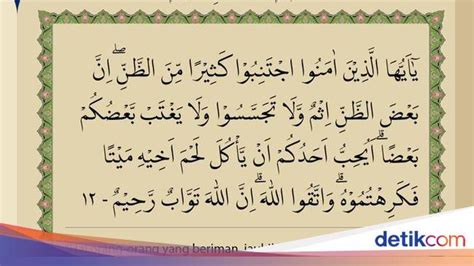 يٰٓاَيُّهَا الَّذِيْنَ اٰمَنُوا اجْتَنِبُوْا كَثِيْرًا مِّنَ الظَّنِّۖ اِنَّ
بَعْضَ الظَّنِّ اِثْمٌ وَّلَا تَجَسَّسُوْا وَلَا يَغْتَبْ بَّعْضُكُمْ
بَعْضًاۗ اَيُحِبُّ اَحَدُكُمْ اَنْ يَّأْكُلَ لَحْمَ اَخِيْهِ مَيْتًا
فَكَرِهْتُمُوْهُۗ وَاتَّقُوا اللّٰهَ ۗاِنَّ اللّٰهَ تَوَّابٌ رَّحِيْمٌ - ١٢
orang yang beriman, jauhi
detikcom